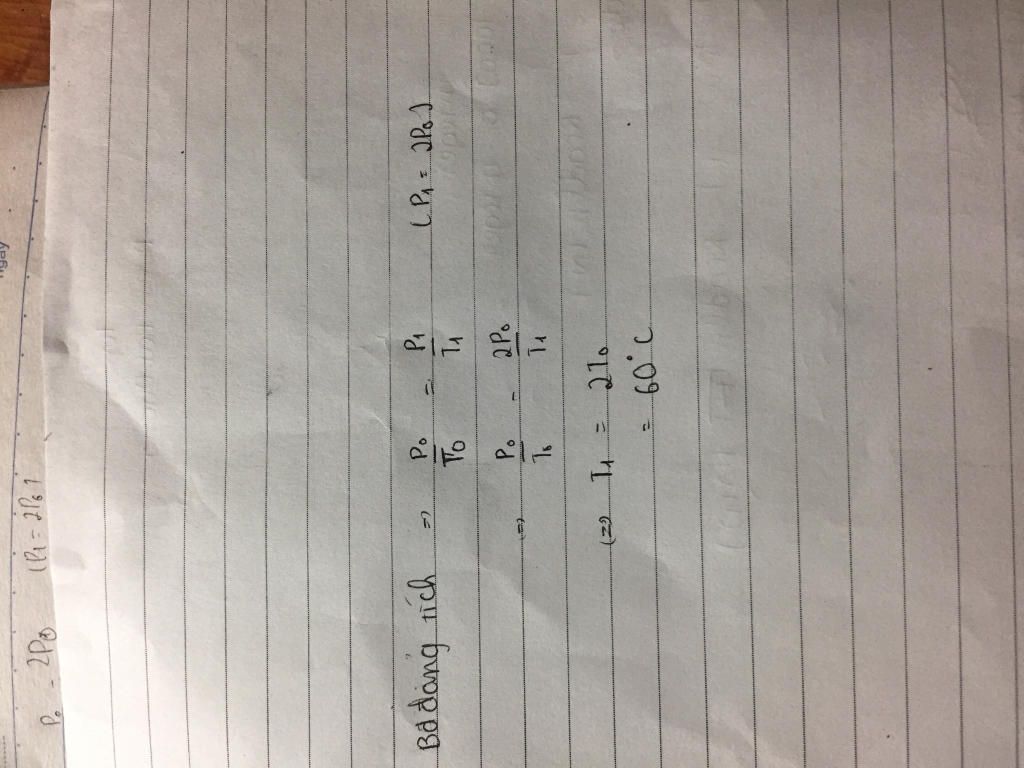 P₀ = 2P₀ (P₁ = 2P₀)
Bđ đẳng tích => P₀/T₀ = P₁/T₁ (P₁ = 2P₀)
=> P₀/T₀ = 2P₀/T₁
(=> T₁ = 2T₀
= 60°C